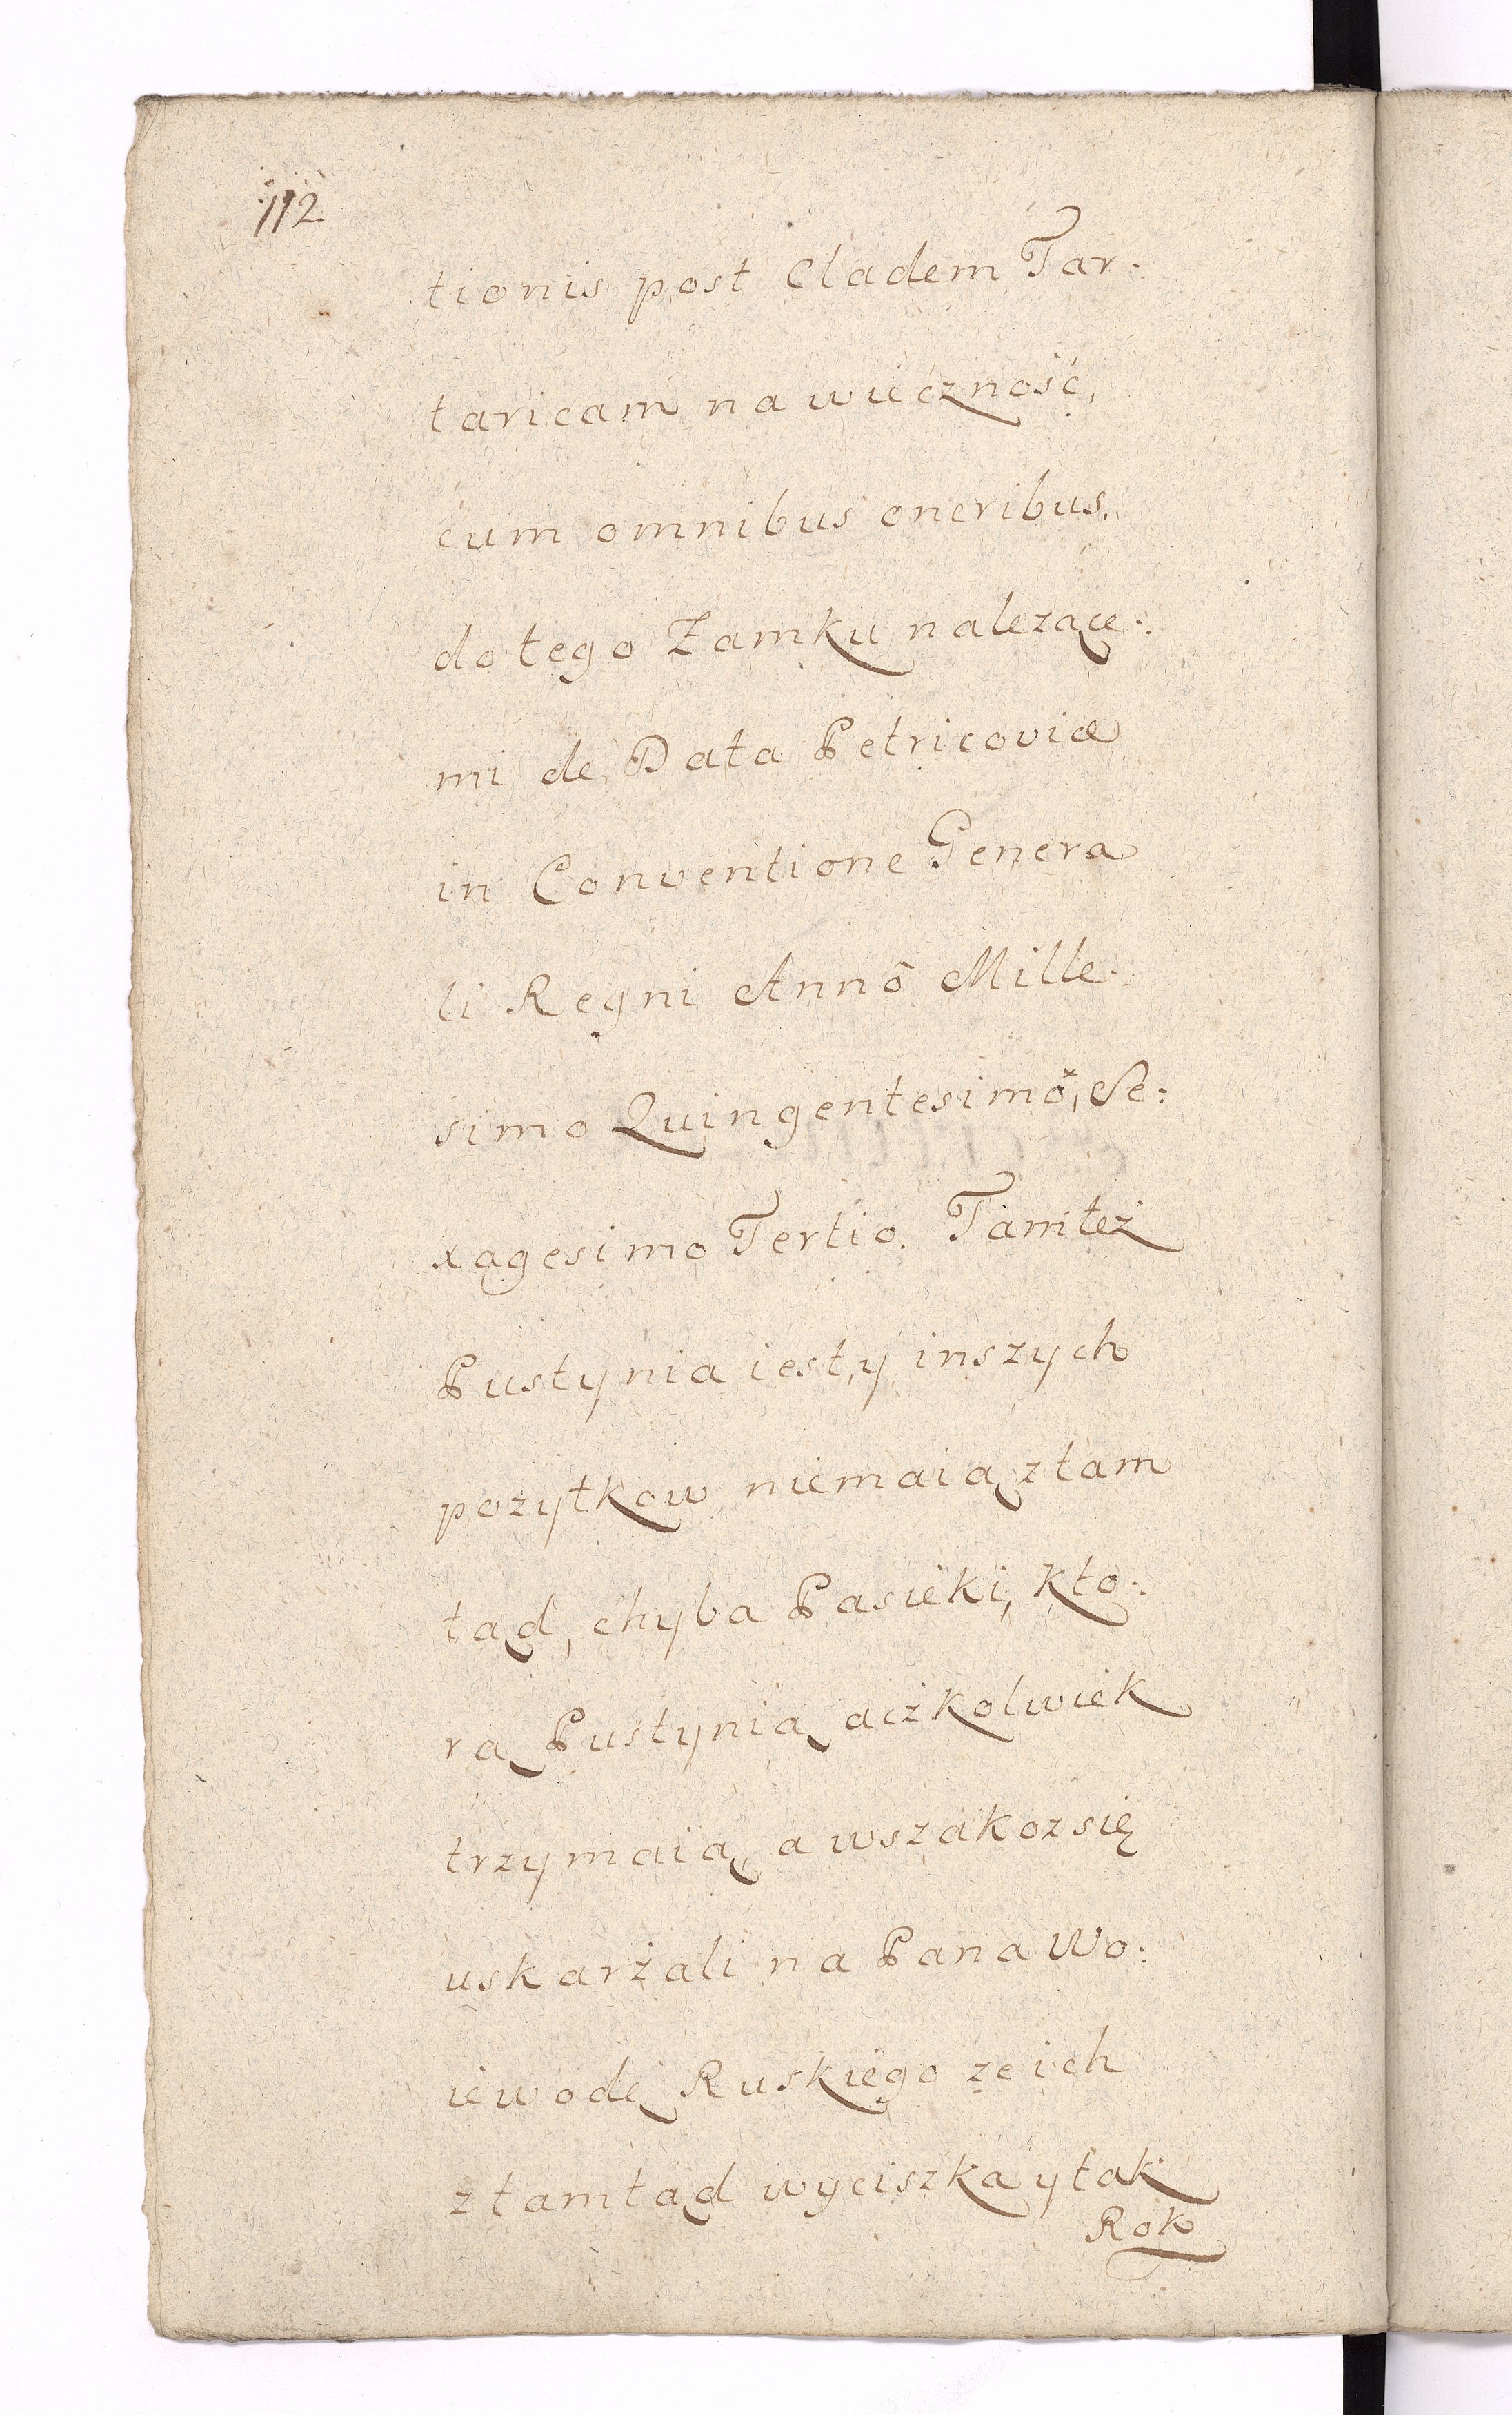 112.
tionis post Cladem Tar:
taricam na wieczność,
cum omnibus oneribus,
do tego Zamku nalezące:
mi de Data Petricoviæ
in Conventione Genera
li Regni Annô Mille:
simo Quingentesimô, Se:
xagesimo Tertio. Tamteż
Pustynia iest, y inszych
pozytkow niemaią ztam
tąd, chyba Pasieki, kto:
rą Pustynią aczkolwiek
trzymaią, a wszakoz się
uskarżali na Pana Wo:
iewodę Ruskiego ze ich
ztamtąd wyciszka y tak
Rok